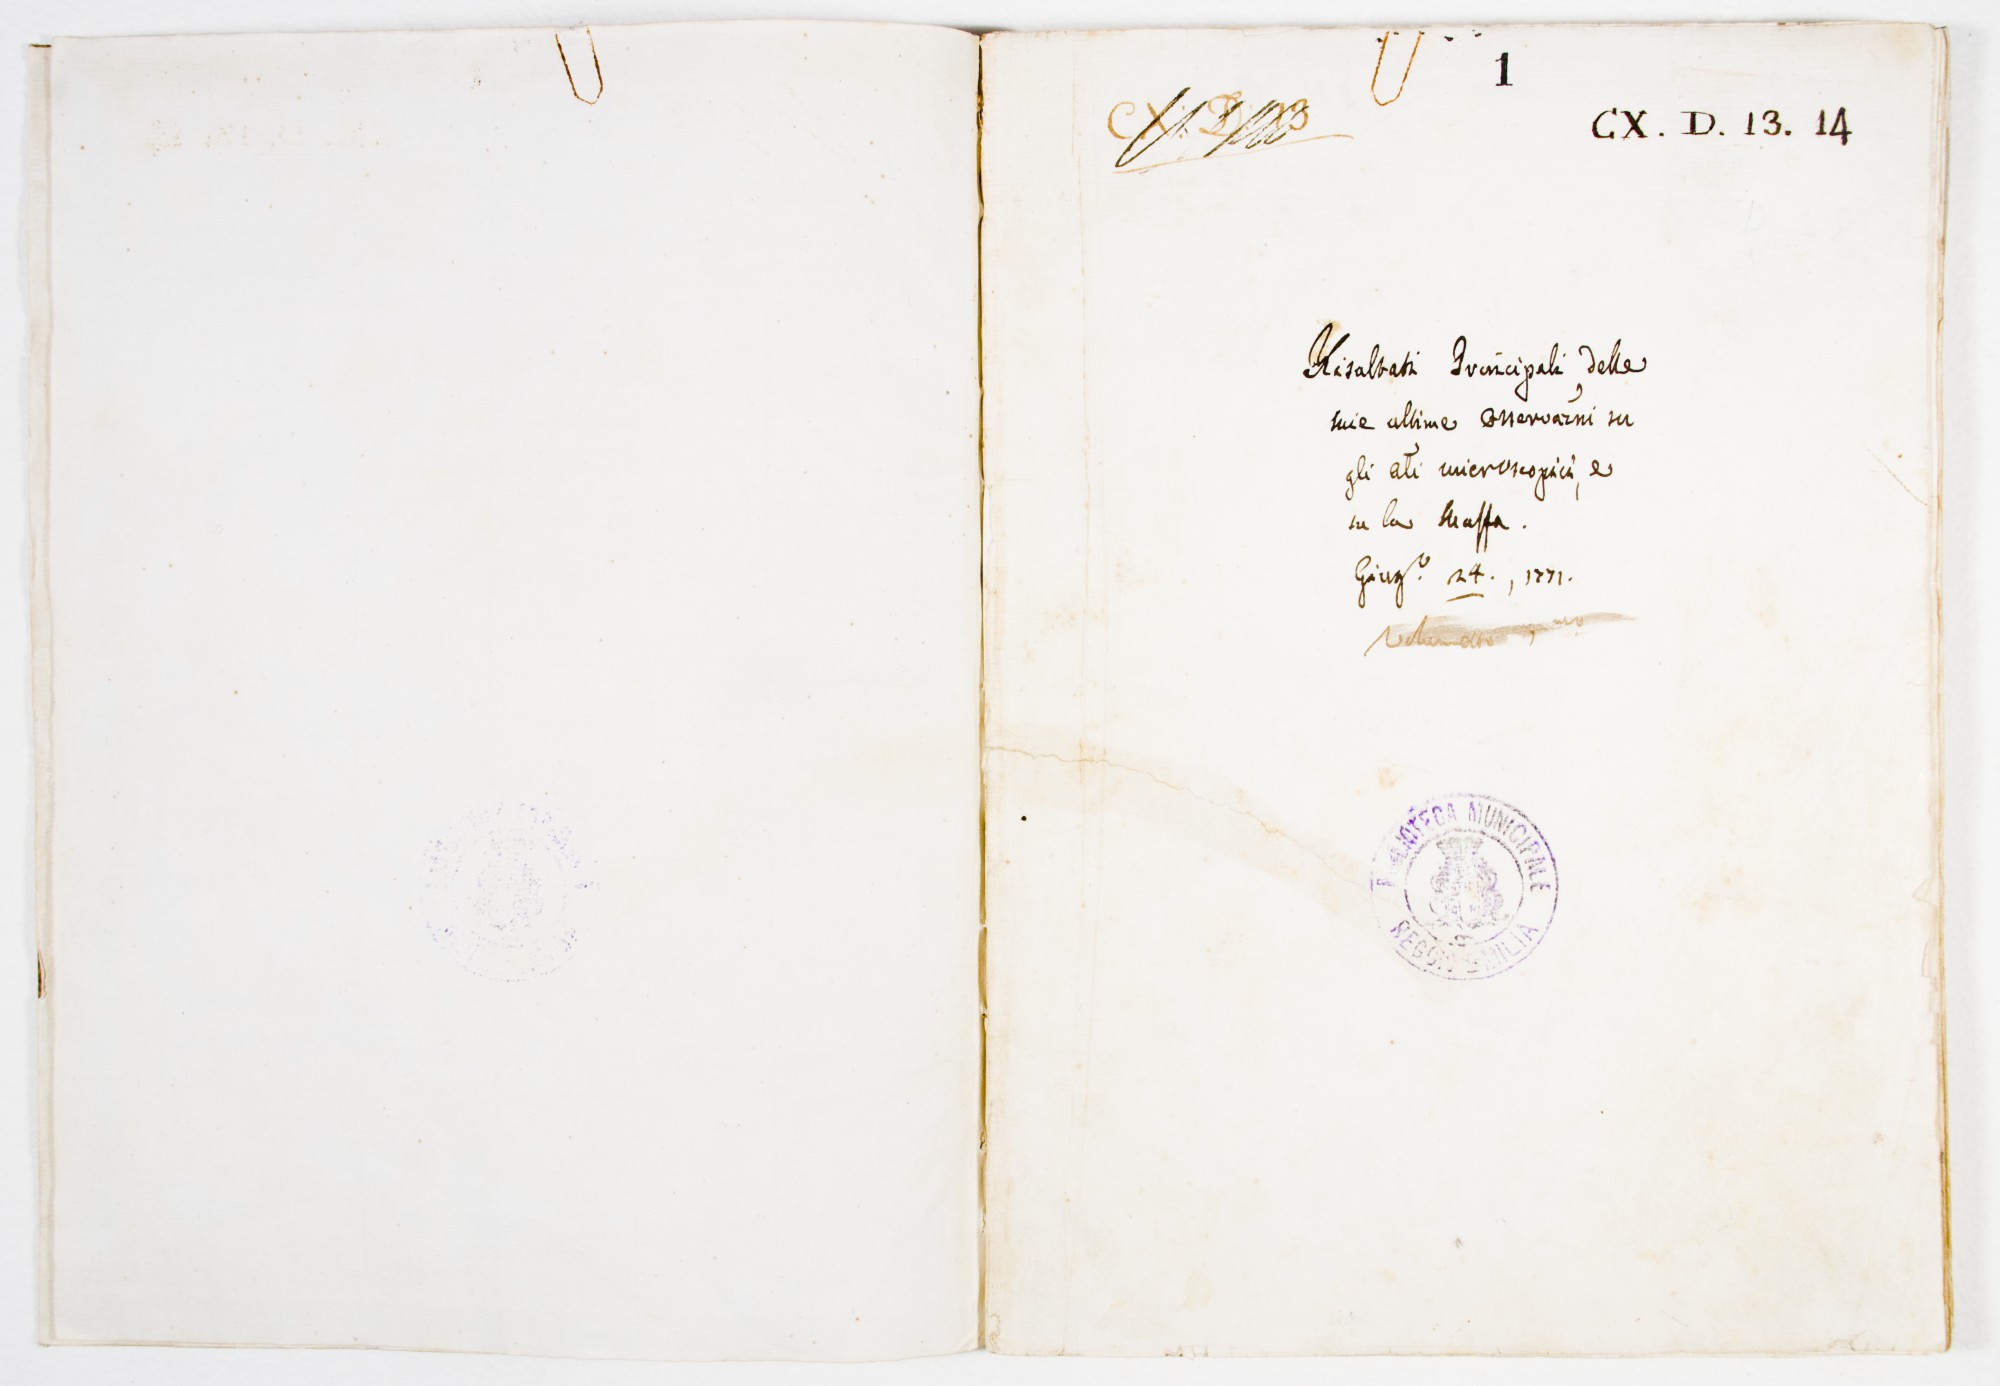 1
CX. D. 13
CX. D. 13. 14
Risultati Principali delle
mie ultime osservazni su
gli ali microscopici, e
su la Muffa.
Giugo. 24., 1771.
BIBLIOTECA MUNICIPALE
REGGIO EMILIA